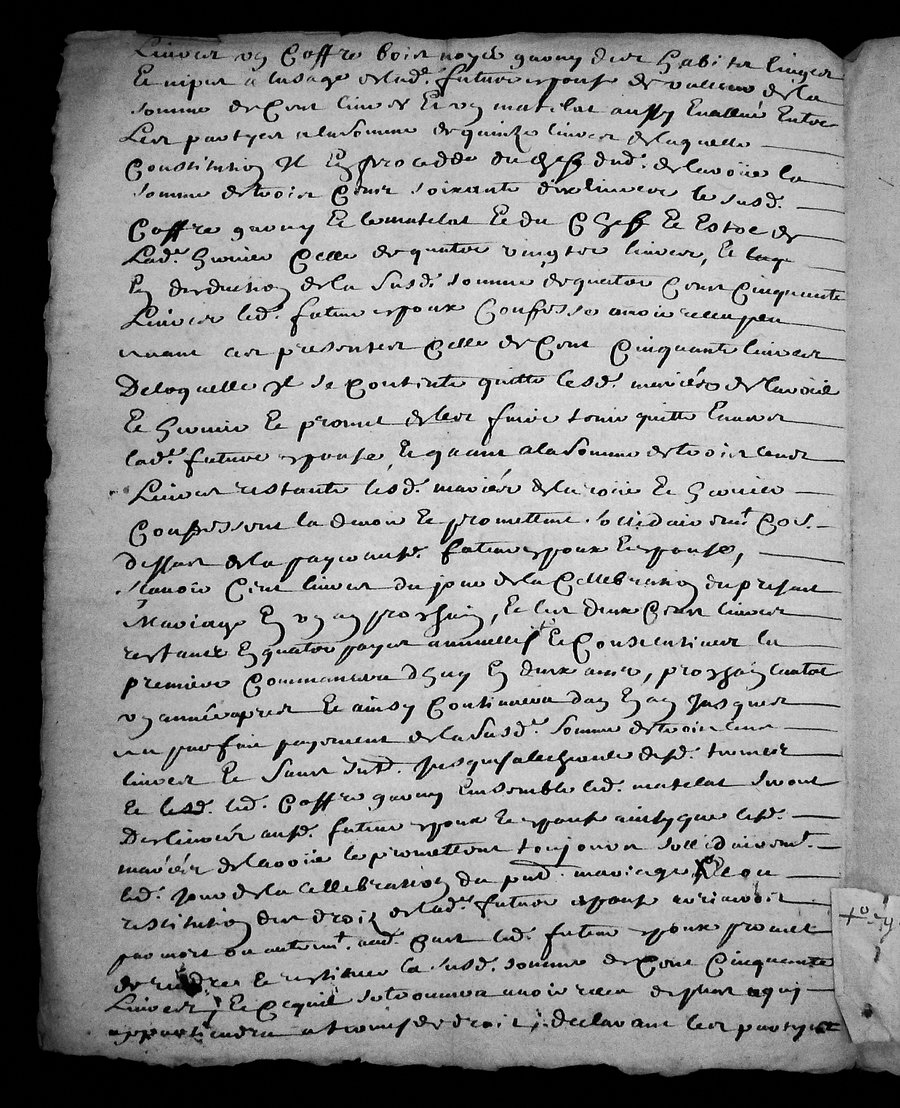 Livres vn Coffre bois noyer garny des habits linges
et nipes a lusage de lad. future espouse de valleur de la
somme de Cent livres Et vn matelas aussy Evallué Entre
Les partyes a la somme de quinze livres de laquelle
Constitution Il En procedde du chef dud. de lavoüe la
somme de trois Cens soixante dix livres le susd.
Coffre garny Et le matelas Et du Chef Et Estoc de
Lad. Celle de quatre vingts livres, Et
En deduction de la susd. somme de quatre Cens Cinquante
Livres led. futur espoux Confesse avoir receu peu
avant ces presentes Celle de Cent Cinquante livres
De laquelle Il se Contente quitte lesd. mariés de lavoüe
Et Et promet de les faire tenir quitte Envers
lad. future espouse, Et quant a la somme de trois Cens
Livres restante lesd. mariés de lavoüe Et
Confessent la devoir Et promettent sollidairemt. Cos.
dessus de la payer ausd. futurs espoux Et espouse,
scavoir Cent livres du jour de la Cellebration du presant
Mariage En vn an prochain, Et les deux Cens livres
restantes En quatre payes annuelles Et Consecutives la
premiere Commancera d'huy En deux ans, prochain lautre
vn année apres Et ainsy Continuera d'an En an Jusques
au parfait payement de la susd. somme de trois Cens
livres Et sans Intt. Jusques a lescheute desd. termes
Et lesd. led. Coffre garny Ensemble led. matelas seront
Deslivrés ausd. futurs espoux Et espouse ainsy que lesd.
mariés de lavoüe le promettent toujours sollidairemt.
led. Jour de la Cellebration du put. mariage Et ou
restitution des droits de lad. future espouse arriveroit
par mort ou autremt. aud. Cas led. futur espoux promet
de rendre Et restituer la susd. somme de Cent Cinquante
Livres, Et Ce quil se trouvera avoir receu de plus a qui
appartiendra a forme de droit; declarant les partyes